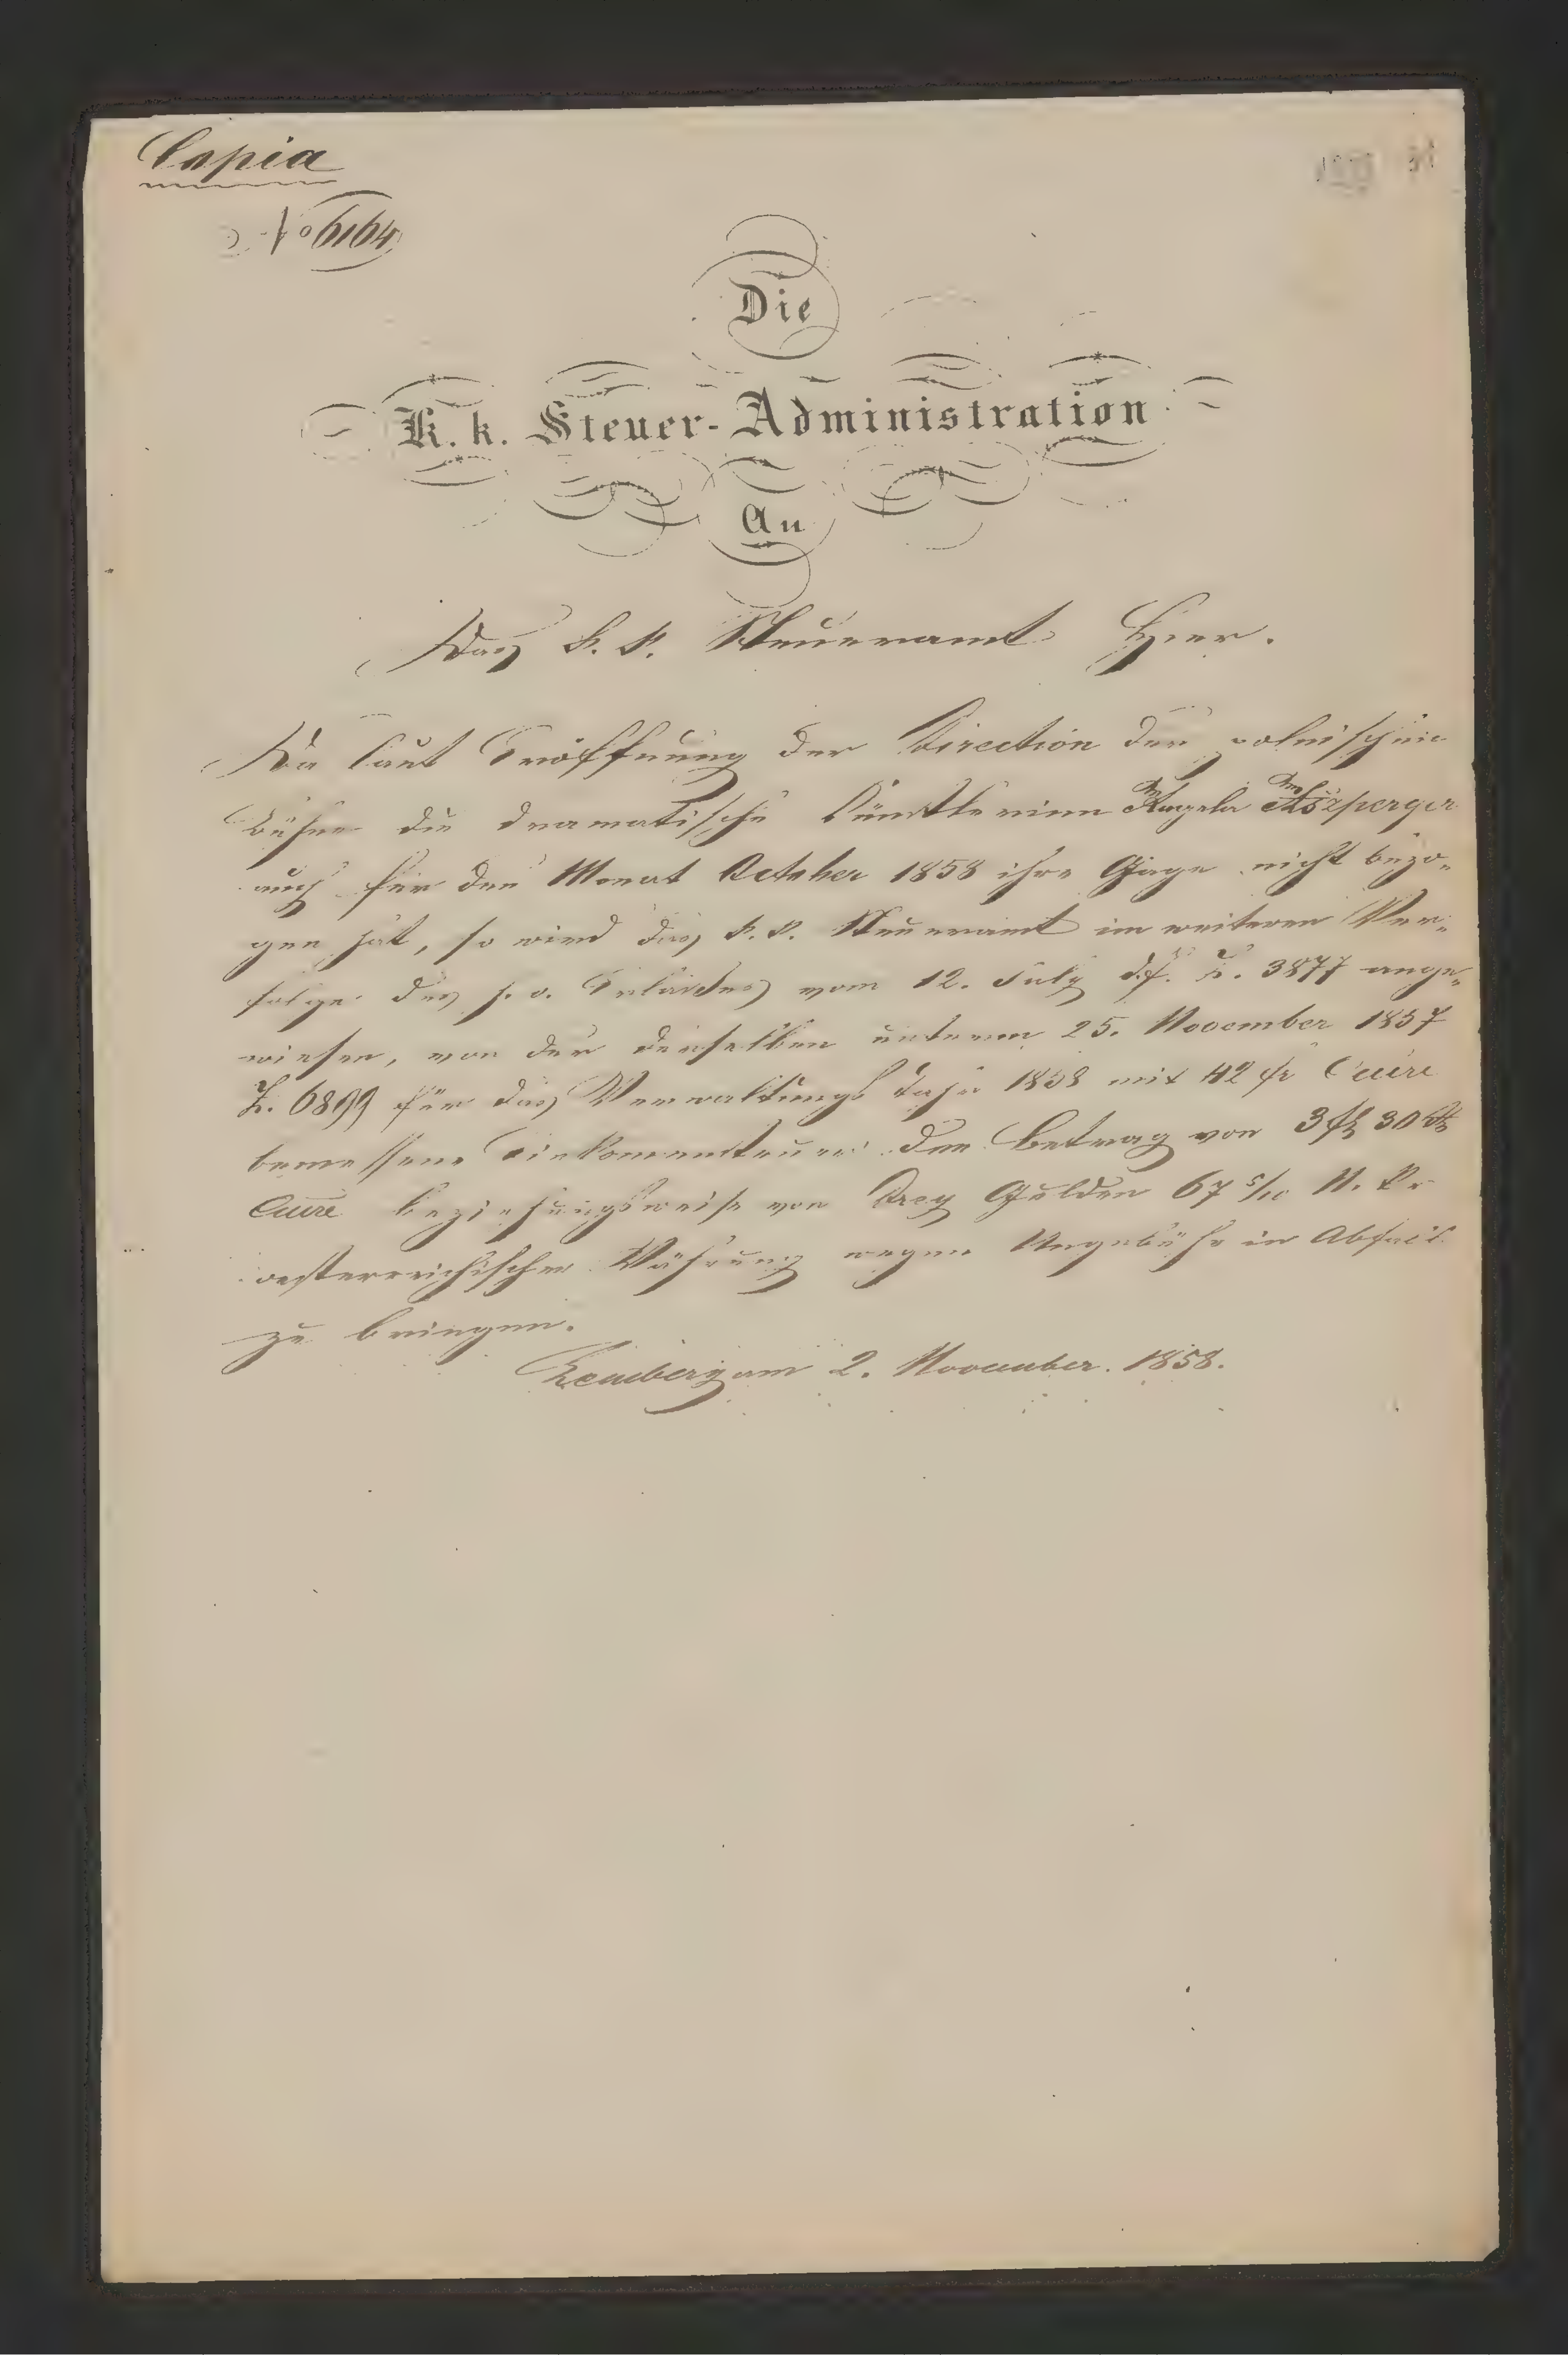 Copia
No 6164
Die
K. k. Steuer-Administration
An
Das k. k. Steueramt Hier.
Da laut Eröffnung der Direction der polnischen
Bühne die dramatische Künstlerinn Angela Aszperger
auch für den Monat October 1858 ihre Gage nicht bezo-
gen hat, so wird das k. k. Steueramt im weiteren Ver-
folge des h. o. Erlasses vom 12. July d. J. Z. 3877 ange-
wiesen, von der derselben unterm 25. November 1857
Z. 6899 für das Verwaltungs Jahr 1858 mit 42 fr
bemessene Einkommensteuer den Betrag von 3 fl 30 kr
beziehungsweise von Drey Gulden 67 5/10 N. Kr
oesterreichischer Währung wegen Ungebühr in Abfall
zu bringen.
Lemberg am 2. November. 1858.